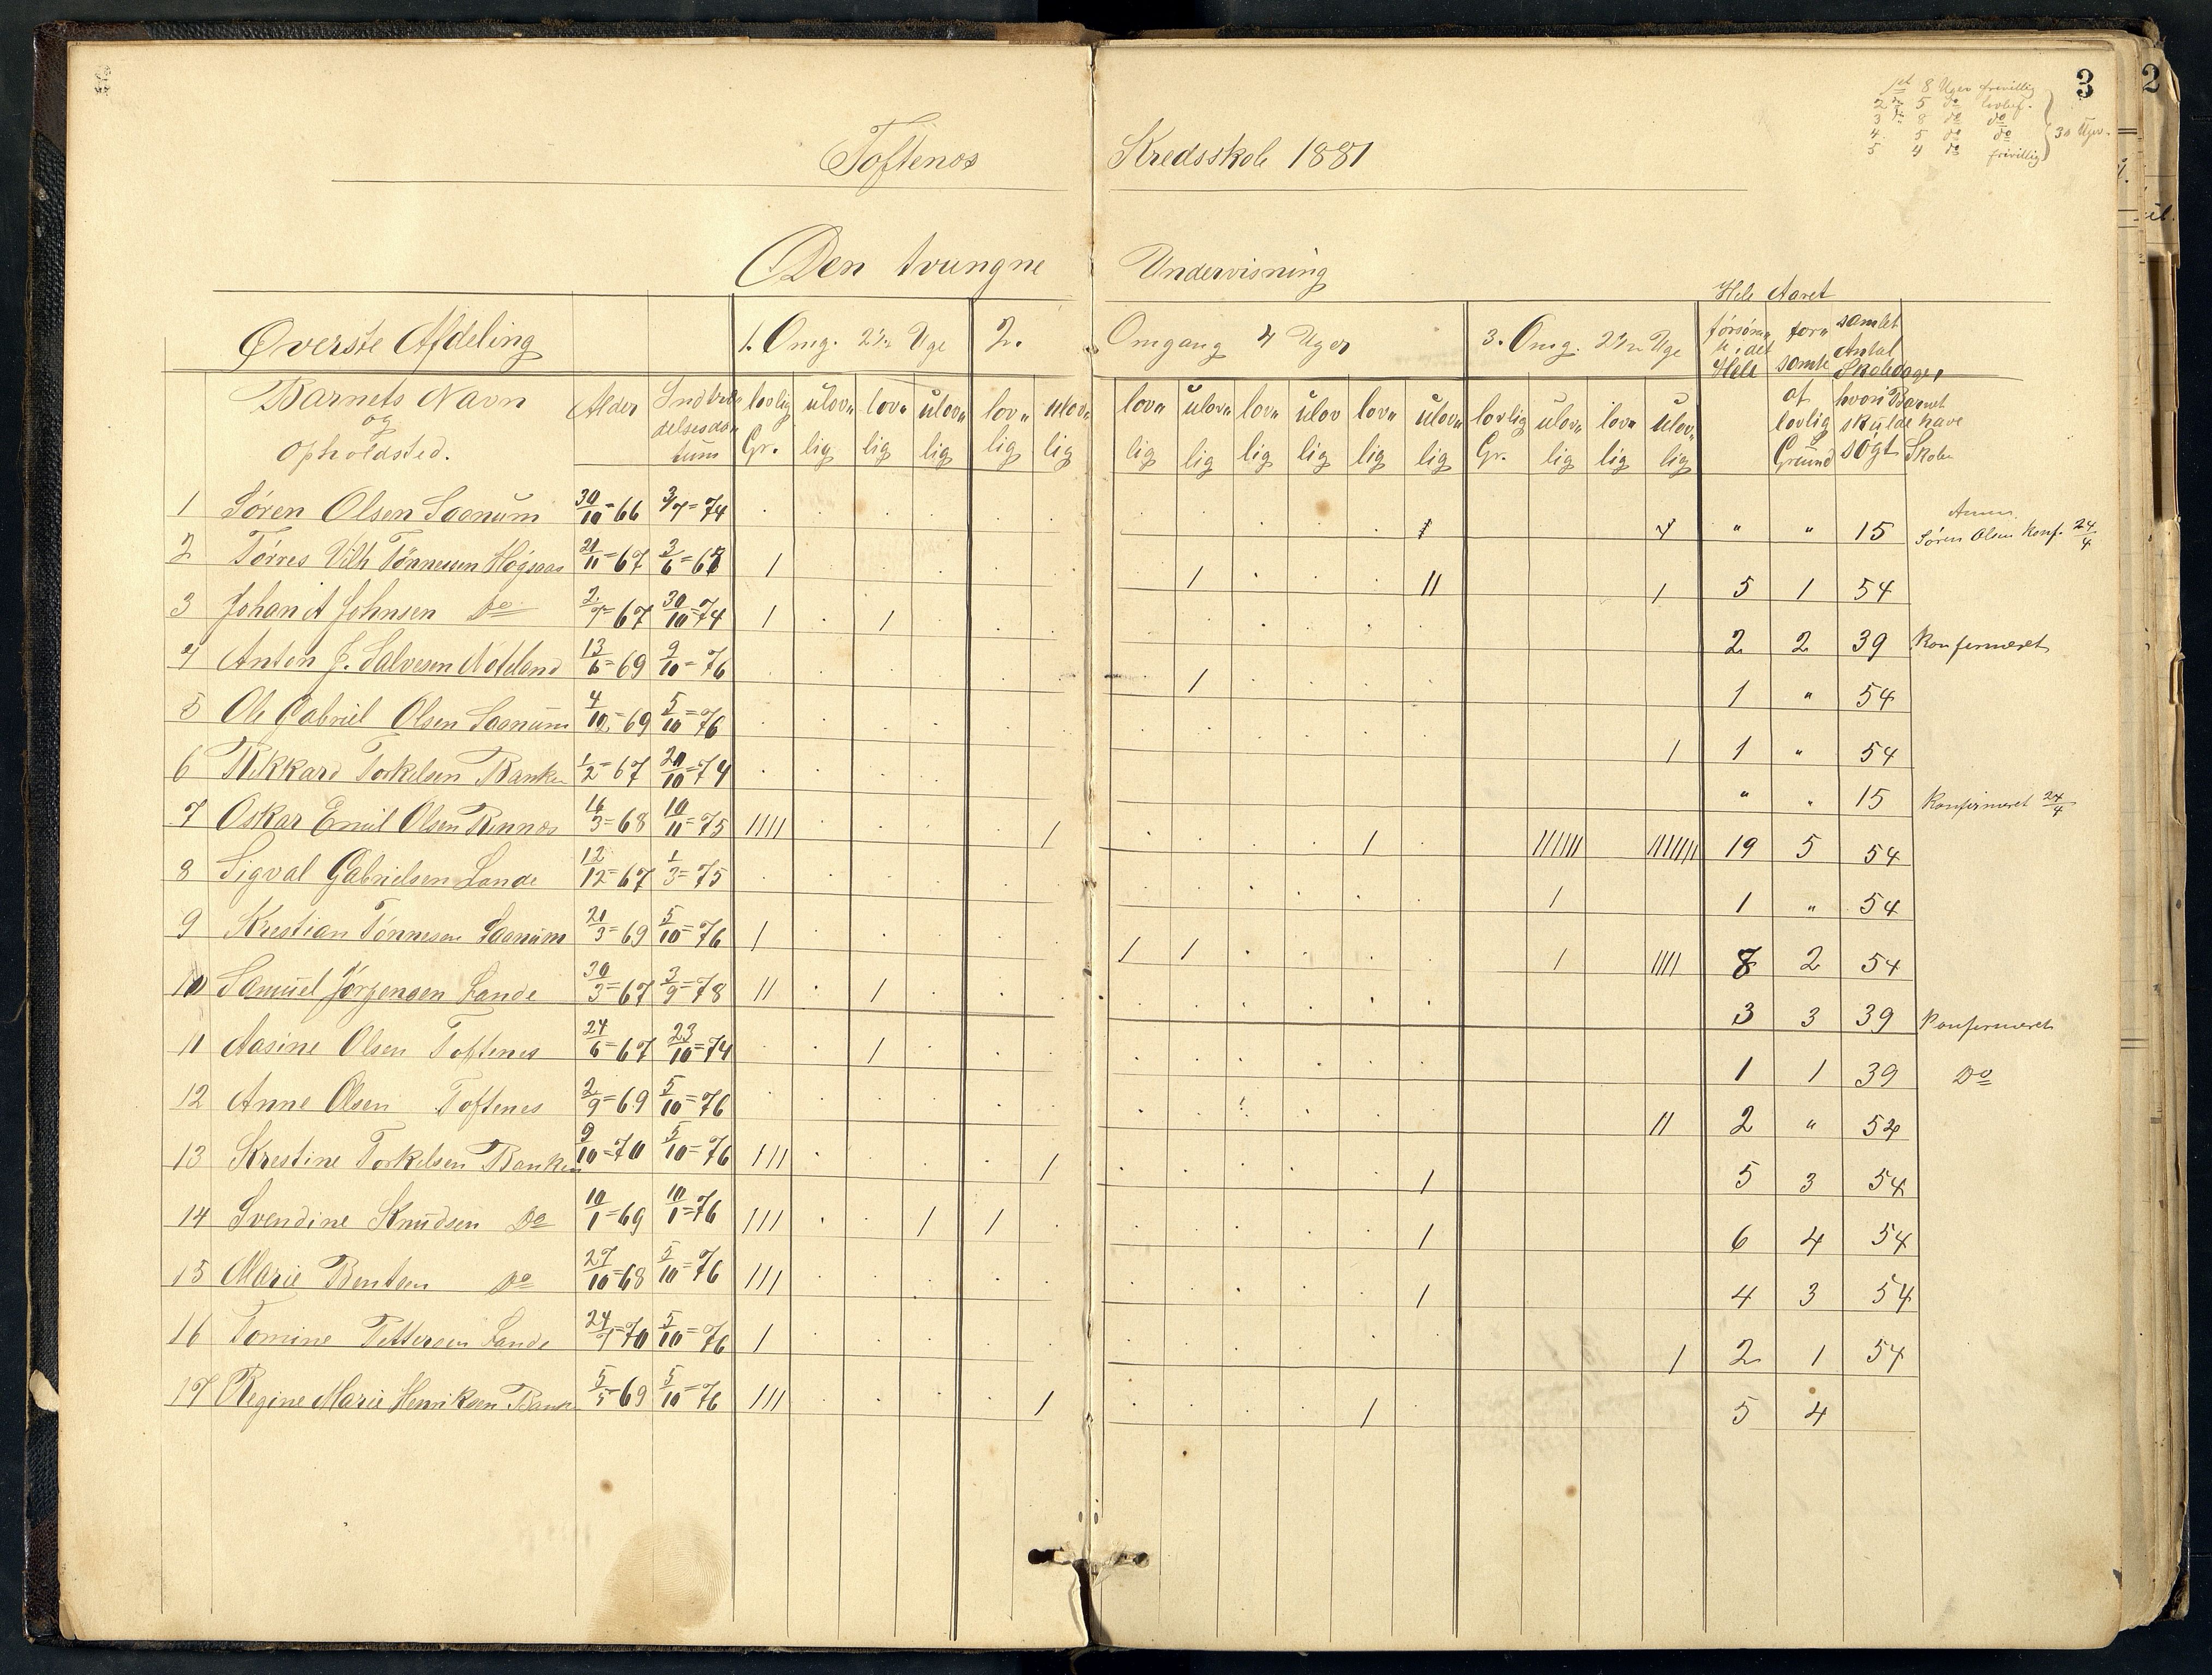 3
2
1ste 8 Uger frivillig
2 do 5 do lovbef.
3 do 8 do do
4 5 do do
5 4 do frivillig
30 Uger.
Toftenes Kredsskole 1881
Den tvungne Undervisning
Hele Aaret
Øverste Afdeling 1. Omg. 2½ Uge 2. Omgang 4 Uger 3. Omg. 2½ Uge
Barnets Navn og Opholdsted. Alder Indtrædelsesdatum
lovlig Gr. ulovlig lovlig ulovlig lovlig ulovlig lovlig ulovlig lovlig ulov lig lovlig ulovlig lovlig Gr. ulovlig lovlig ulovlig
forsømt i det Hele
forsømte af lovlig Grund
samlet Antal Skoledage, hvori Barnet skulde have søgt Skolen
1 Søren Olsen Saanum 30/10=66 3/7=74 " " 15 Søren Olsen Konf. 24/4
2 Tørres Vilh Tønnessen Høgsaas 21/11=67 1 1 11 1 5 1 54
3 Johan A Johnsen Do 2/7=67 30/10=74 1 1 2 2 39 Konfirmeret
4 Anton J. Salvesen Nodeland 13/6=69 9/10=76 1 1 " 54
5 Ole Gabriel Olsen Saanum 4/12=69 5/10=76 1 1 " 54
6 Rikkard Torkelsen Banken 1/2=67 20/10=74 " " 15 Konfirmeret 24/4
7 Oskar Emil Olsen Rennes 16/3=68 10/11=75 1111 1 1 111111 1111111 19 5 54
8 Sigval Gabrielsen Lande 12/12=67 1/3=75 1 1 " 54
9 Kristian Tønnesen Saanum 21/3=69 5/10=76 1 1 1 1 1111 8 2 54
10 Samuel Jørgensen Lande 30/3=67 3/9=78 11 1 3 3 39 Konfirmeret
11 Aasine Olsen Toftenes 24/6=67 23/10=74 1 1 1 39 Do
12 Anne Olsen Toftenes 2/9=69 5/10=76 11 2 " 54
13 Krestine Torkelsen Banken 9/10=70 5/10=76 111 1 1 5 3 54
14 Svendine Knudsen Do 10/1=69 10/1=76 111 1 1 1 6 4 54
15 Marie Bentsen Do 27/10=68 5/10=76 111 1 4 3 54
16 Tomine Pettersen Lande 24/7=70 5/10=76 1 1 2 1 54
17 Regine Marie Henriksen Banken 5/5=69 5/10=76 111 1 1 5 4